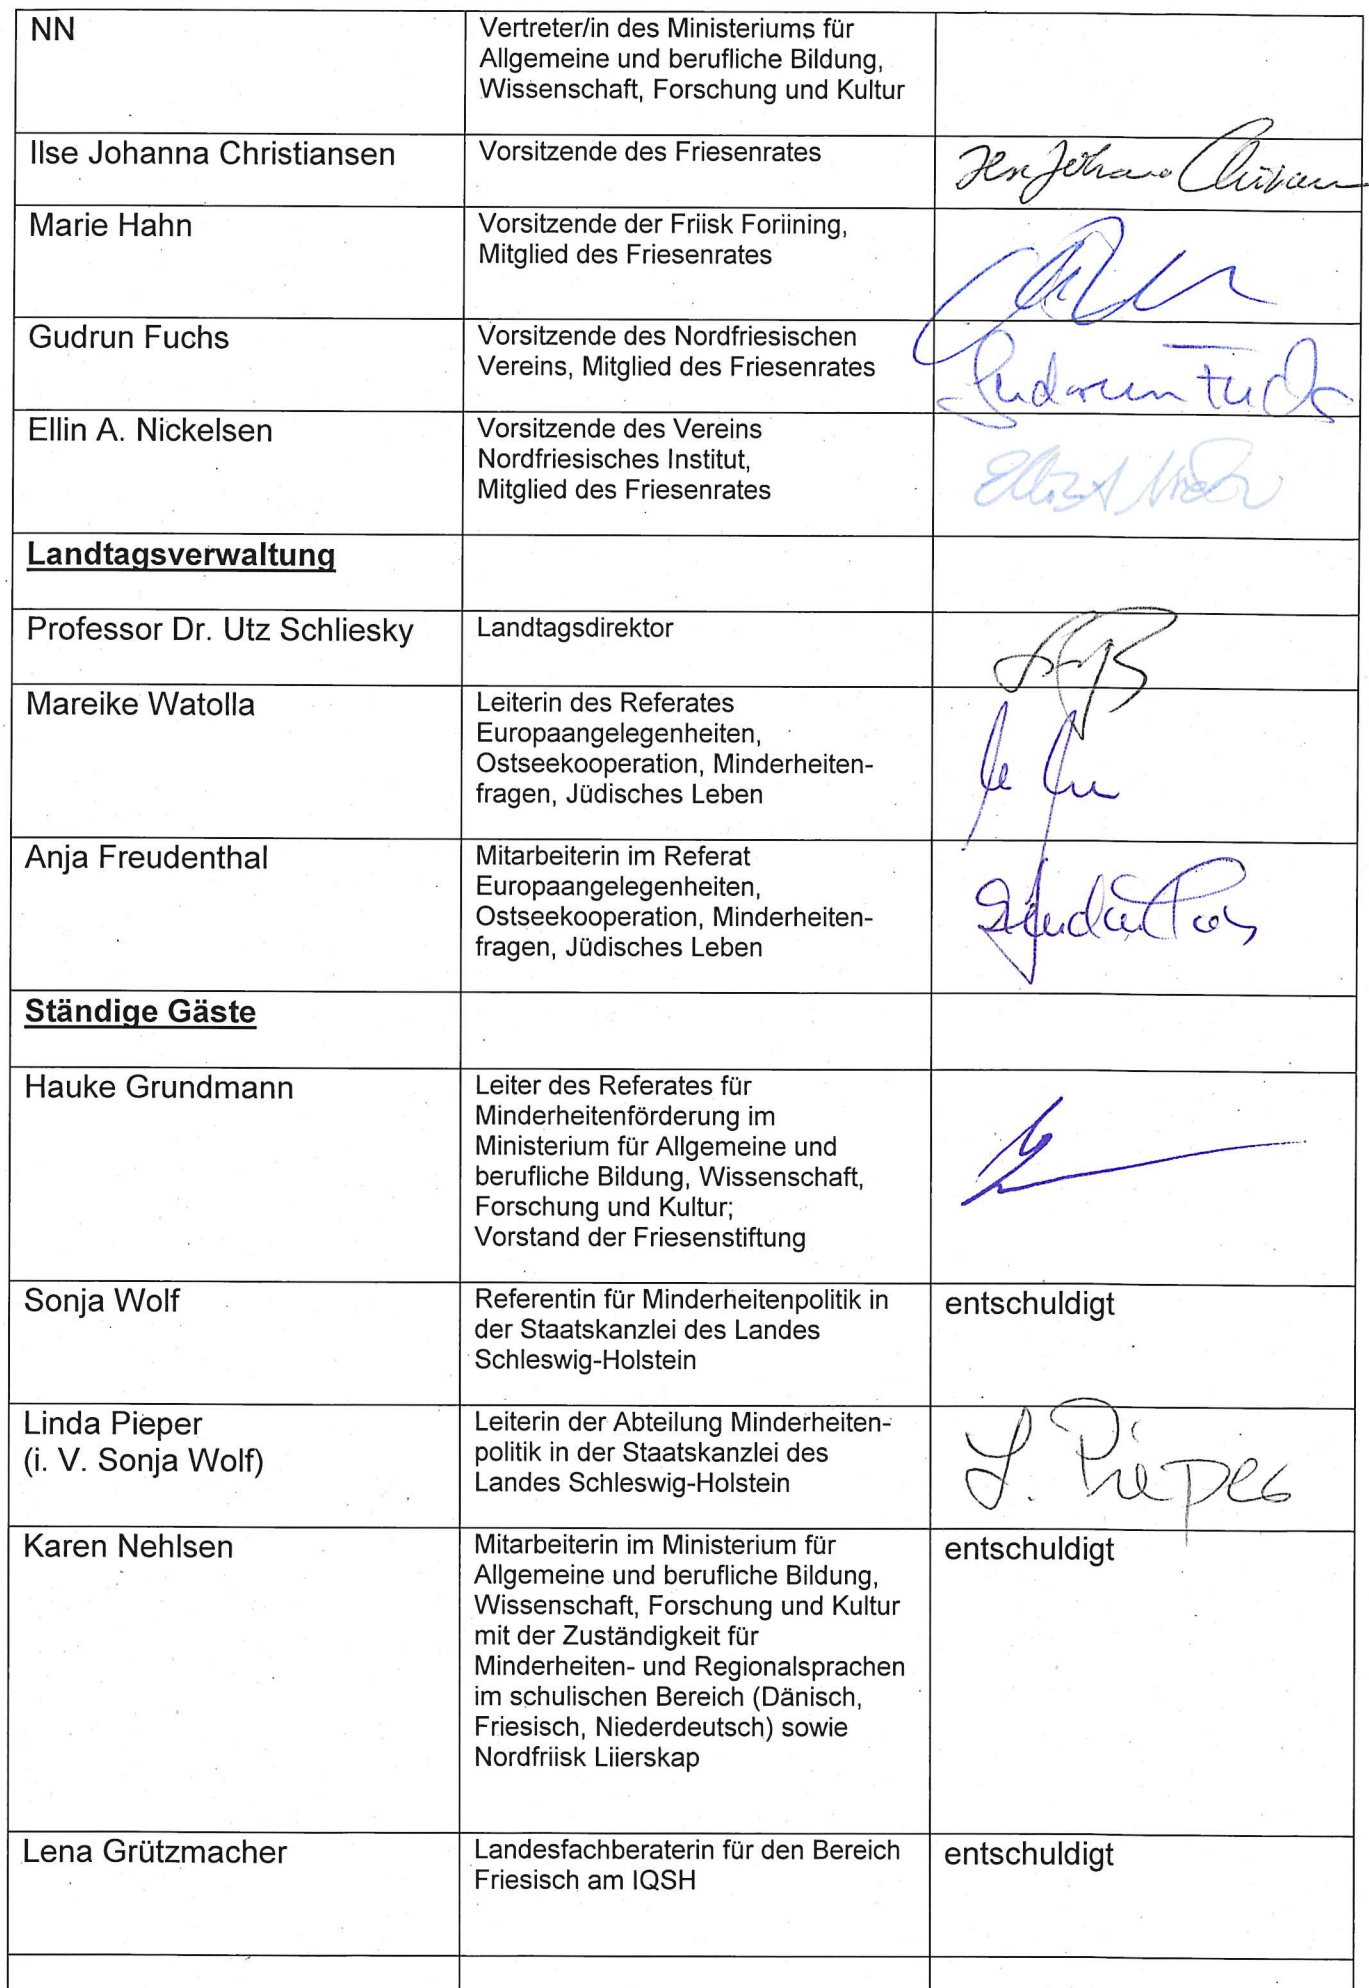 NN
Vertreter/in des Ministeriums für
Allgemeine und berufliche Bildung,
Wissenschaft, Forschung und Kultur
Ilse Johanna Christiansen
Vorsitzende des Friesenrates
Marie Hahn
Vorsitzende der Friisk Foriining,
Mitglied des Friesenrates
Gudrun Fuchs
Vorsitzende des Nordfriesischen
Vereins, Mitglied des Friesenrates
Gudrun Fuchs
Ellin A. Nickelsen
Vorsitzende des Vereins
Nordfriesisches Institut,
Mitglied des Friesenrates
Landtagsverwaltung
Professor Dr. Utz Schliesky
Landtagsdirektor
Mareike Watolla
Leiterin des Referates
Europaangelegenheiten,
Ostseekooperation, Minderheiten-
fragen, Jüdisches Leben
Anja Freudenthal
Mitarbeiterin im Referat
Europaangelegenheiten,
Ostseekooperation, Minderheiten-
fragen, Jüdisches Leben
Ständige Gäste
Hauke Grundmann
Leiter des Referates für
Minderheitenförderung im
Ministerium für Allgemeine und
berufliche Bildung, Wissenschaft,
Forschung und Kultur;
Vorstand der Friesenstiftung
Sonja Wolf
Referentin für Minderheitenpolitik in
der Staatskanzlei des Landes
Schleswig-Holstein
entschuldigt
Linda Pieper
(i. V. Sonja Wolf)
Leiterin der Abteilung Minderheiten-
politik in der Staatskanzlei des
Landes Schleswig-Holstein
L. Pieper
Karen Nehlsen
Mitarbeiterin im Ministerium für
Allgemeine und berufliche Bildung,
Wissenschaft, Forschung und Kultur
mit der Zuständigkeit für
Minderheiten- und Regionalsprachen
im schulischen Bereich (Dänisch,
Friesisch, Niederdeutsch) sowie
Nordfriisk Liierskap
entschuldigt
Lena Grützmacher
Landesfachberaterin für den Bereich
Friesisch am IQSH
entschuldigt